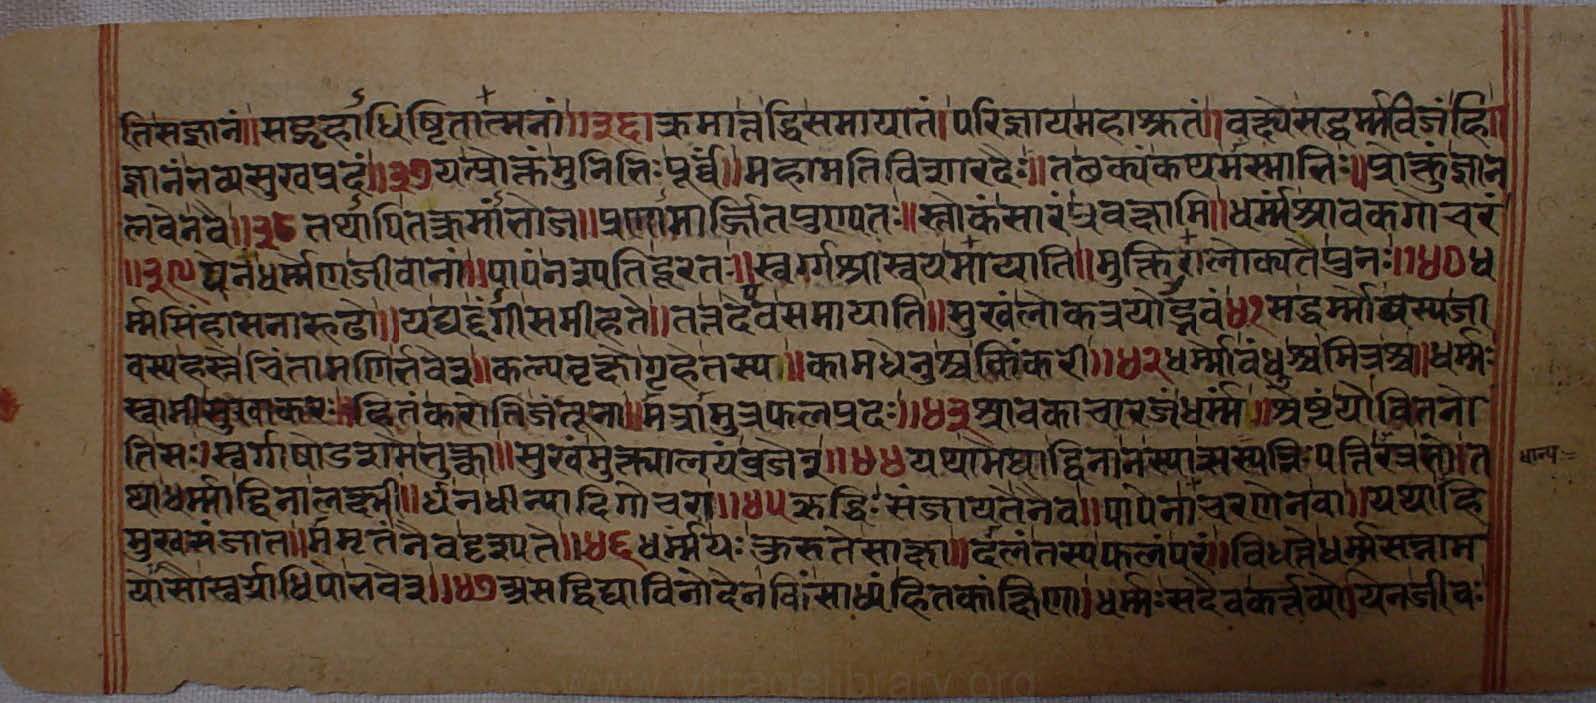 तिसज्ञानं॥सद्गृहाधिष्ठितात्मनां॥३६॥क्रमात्तद्धिसमायातं।परिज्ञायमहाश्रुतं॥वक्ष्येसद्धर्म्मबीजंहि॥
ज्ञानंनव्यसुखप्रदं॥३७यत्प्रोक्तंमुनिभिःपूर्वं॥महामतिविशारदैः॥तछक्यंकथमस्माभिः॥प्रोक्तुंज्ञान
लवेनवै॥३८तथापितत्क्रमांभोज॥प्रणामार्ज्जितपुण्यतः॥स्तोकंसारंप्रवक्ष्यामि॥धर्म्मंश्रावकगोचरं
॥३९येनधर्म्मेणजीवानां॥पापंनश्यतिदूरतः॥स्वर्गश्रीस्वयमायाति॥मुक्तिरालोक्यतेपुनः॥४०ध
र्म्मसिंहासनारूढो॥यद्यद्दंगीसमीहते॥तत्तदेवसमायाति॥सुखंलोकत्रयोद्भवं४१सद्धर्म्मोयस्यजी
वस्यहस्तेचिंतामणिर्भवेत्॥कल्पवृक्षोगृहेतस्य॥कामधेनुश्चकिंकरी॥४२धर्म्मोबंधुश्चमित्रश्च॥धर्म्मः
स्वामीसुखाकरः॥हितंकरोतिजंतूनां॥मत्रामुत्रफलप्रदः॥४३श्रावकाचारजंधर्म्मं॥श्रेष्टंयोवितनो
तिसः।स्वर्गेषोडशमेभुक्त्वा॥सुखंमुक्त्यालयंव्रजेत्॥४४यथामेघाद्विनानस्यात्सस्यनिःपत्तिरत्रभो।त
थाधर्म्माद्विनालक्ष्मी॥र्धनधान्यादिगोचरा॥४५ऋद्धिःसंजायतेनैव॥पापेनाचरणेनवा॥यथाहि
मुखसंजात॥ममृतंनैवदृश्यते॥४६धर्म्मंयःकुरुतेसाक्षा॥देलंतस्यफलंपरं॥विधत्तेधर्म्मसन्नाम
योसौस्वर्गाधिपोभवेत्॥४७असद्विद्याविनोदेनकिंसाध्यंहितकांक्षिणा॥धर्म्मःसदैवकर्त्तव्यो।येनजीवः
धान्य
www.vitragelibrary.org